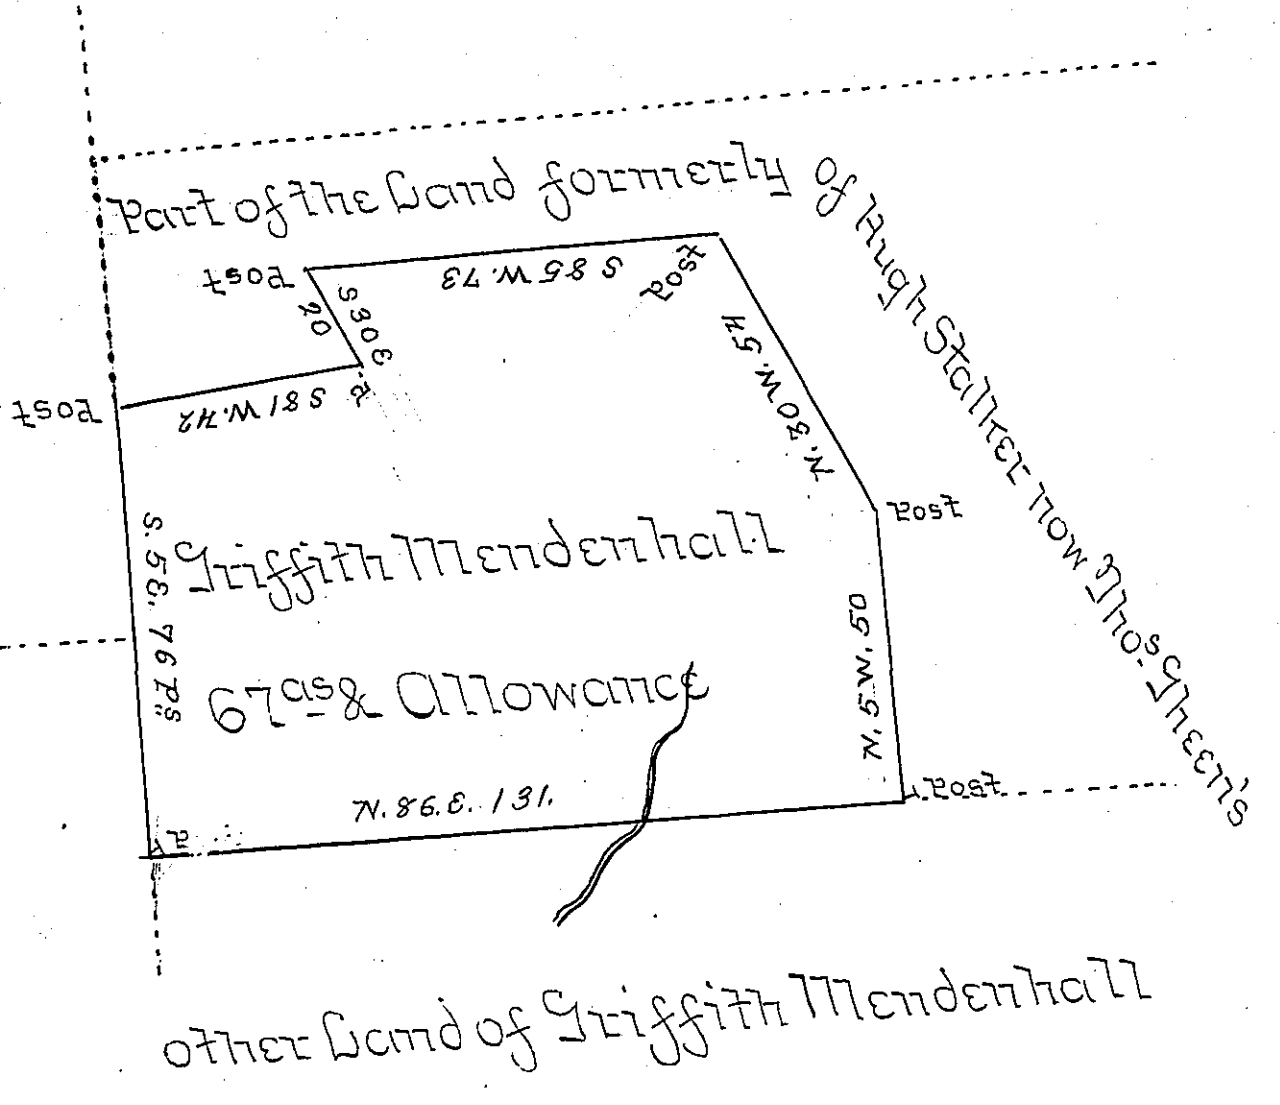 Part of the Land formerly of Hugh Stalker now Thos. Gheen's
Post
S 85 W. 73
Post
S 30 E
20
N. 30 W. 54
Post
S 81 W. 42
P.
Post
S. 5 E. 76 Ps.
Griffith Mendenhall
67 as & Allowance
N. 5 W. 50
N. 86. E. 131.
Post
P
other Land of Griffith Mendenhall